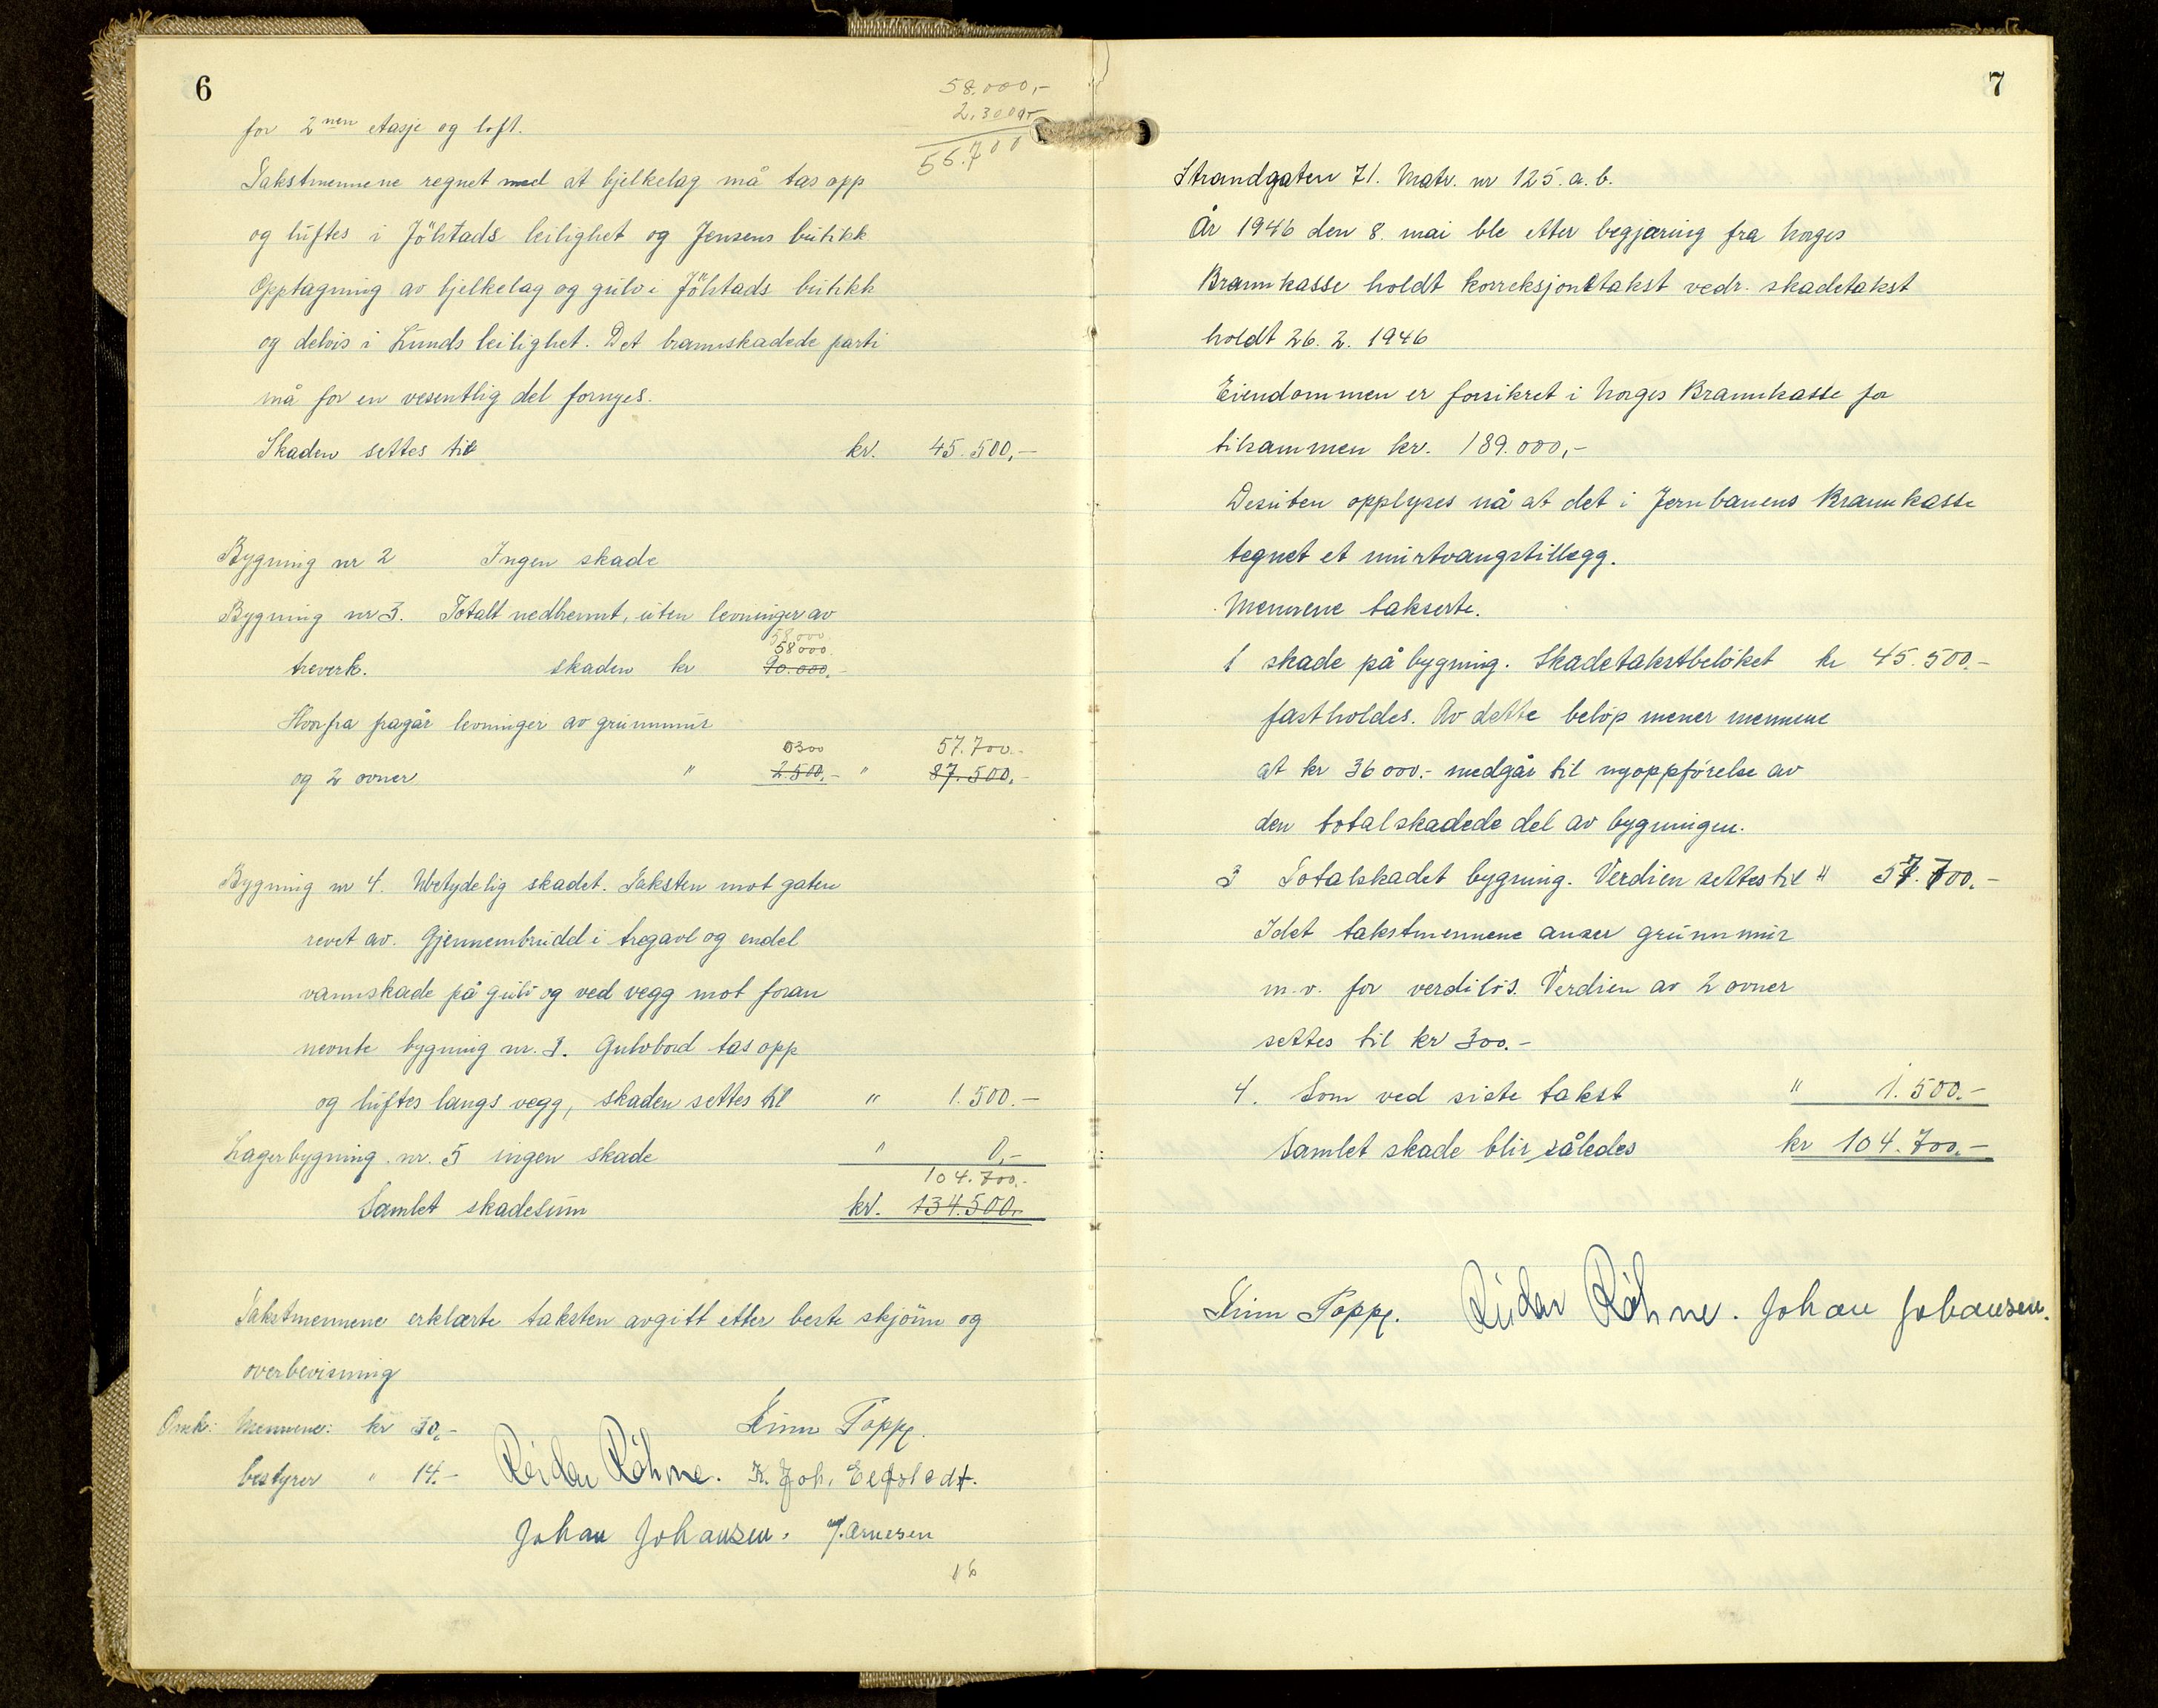 6
58.000,-
2.300,-
56.700
for 2nen etasje og loft.
Takstmennene regnet med at bjelkelag må tas opp
og luftes i Jölstads leilighet og Jensens butikk
Opptagning av bjelkelag og gulv i Jölstads butikk
og delvis i Lunds leilighet. Det brannskadede parti
må for en vesentlig del fornyes.
Skaden settes til kr. 45.500,-
Bygning nr 2 Ingen skade
Bygning nr 3. Totalt nedbrennt, uten levninger av
58.000
58000.
treverk. skaden kr 90.000,-
Hvorfra fragår levninger av grunnmur
0300 57.700.-
og 2 ovner " 2.500,- " 87.500,-
Bygning nr 4. Ubetydelig skadet. Taksten mot gaten
revet av. Gjennembrudd i tregavl og endel
vannskade på gulv og ved vegg mot foran
nevnte bygning nr. 3. Gulvbord tas opp
og luftes langs vegg, skaden settes til " 1.500.-
Lagerbygning nr. 5 ingen skade " 0,-
104.700.-
Samlet skadesum kr. 134.500,-
Takstmennene erklærte taksten avgitt etter beste skjönn og
overbevisning
Omk: Mennene: kr 30,- Finn Topp.
bestyrer " 14.- Reidar Röhne. K. Joh.
Johan Johansen. Arnesen
16
7
Strandgaten 71. Matr. nr 125. a. b.
År 1946 den 8. mai ble etter begjæring fra Norges
Brannkasse holdt korreksjonstakst vedr. skadetakst
holdt 26. 2. 1946
Eiendommen er forsikret i Norges Brannkasse for
tilsammen kr. 189.000,-
Desuten opplyses nå at det i Jernbanens Brannkasse
tegnet et murtvangstillegg.
Mennene takserte.
1 skade på bygning. Skadetakstbelöket kr 45.500.-
fastholdes. Av dette belöp mener mennene
at kr 36000.- medgår til nyoppförelse av
den totalskadede del av bygningen.
3 Totalskadet bygning. Verdien settes til " 57.700.-
Idet takstmennene anser grunnmur
m.v. for verdilös. Verdien av 2 ovner
settes til kr 300.-
4. Som ved siste takst " 1.500.-
Samlet skade blir således kr 104.700.-
Finn Topp. Reidar Röhne. Johan Johansen.